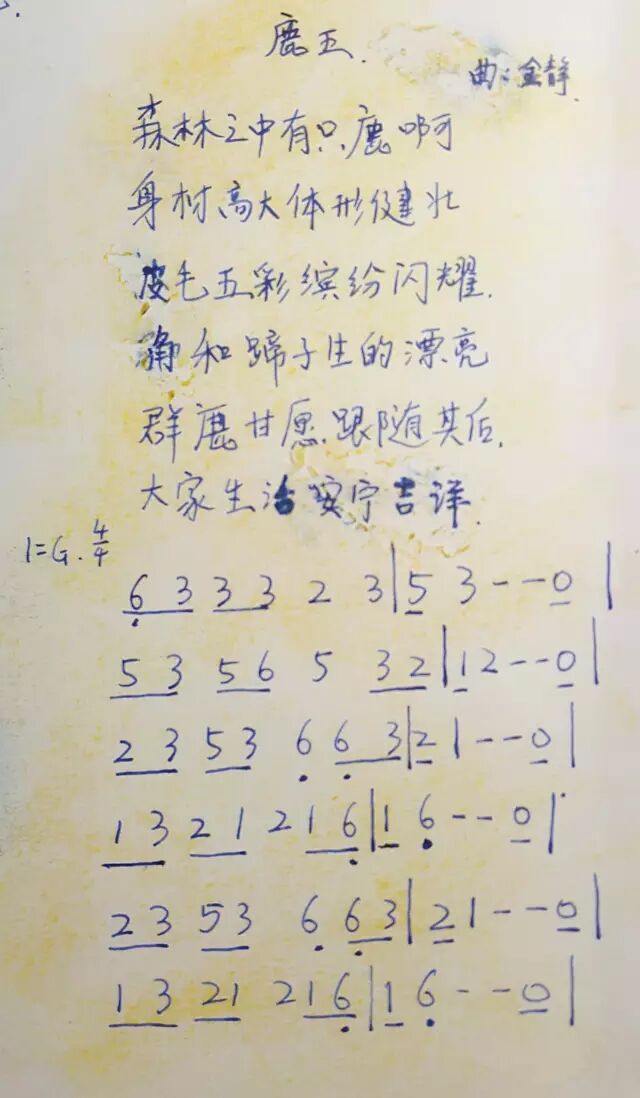 鹿王.
曲:金静.
森林之中有只鹿啊
身材高大体形健壮
皮毛五彩缤纷闪耀.
角和蹄子生的漂亮
群鹿甘愿跟随其后.
大家生活安宁吉详.
1=G. 4/4
6̣ 3 3 3 2 3 | 5 3 - - 0 |
5 3 5 6 5 3 2 | 1 2 - - 0 |
2 3 5 3 6̣ 6̣ 3 | 2 1 - - 0 |
1 3 2 1 2 1 6̣ | 1 6̣ - - 0 |
2 3 5 3 6̣ 6̣ 3 | 2 1 - - 0 |
1 3 2 1 2 1 6̣ | 1 6̣ - - 0 |